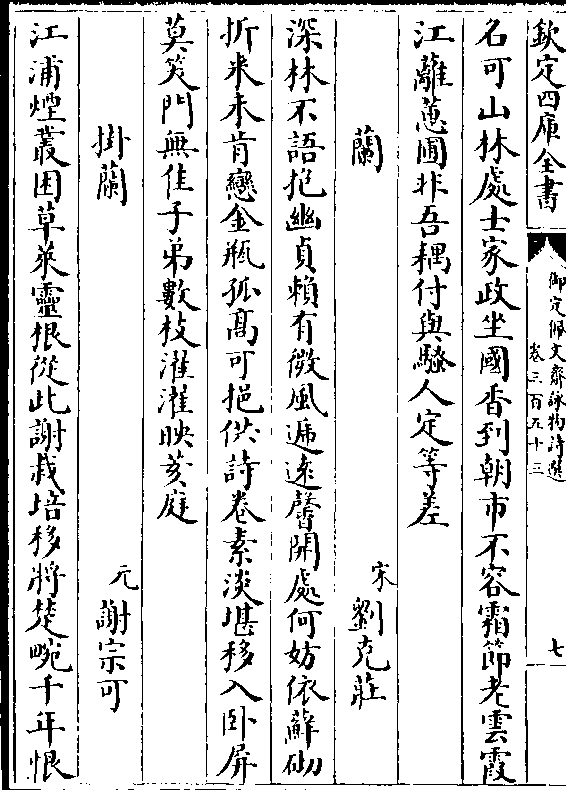 欽定四庫全書
御定佩文齋詠物詩選
卷三百五十三
七
名可山林處士家政坐國香到朝市不容霜節老雲霞
江蘺蕙圃非吾耦付與騷人定等差
蘭
宋劉克莊
深林不語抱幽貞賴有微風遞逺馨開處何妨依蘚砌
折來未肯戀金瓶孤髙可挹供詩卷素淡堪移入卧屏
莫笑門無佳子弟數枝濯濯映莢庭
掛蘭
元謝宗可
江浦煙叢困草萊靈根從此謝栽培移將楚畹千年恨